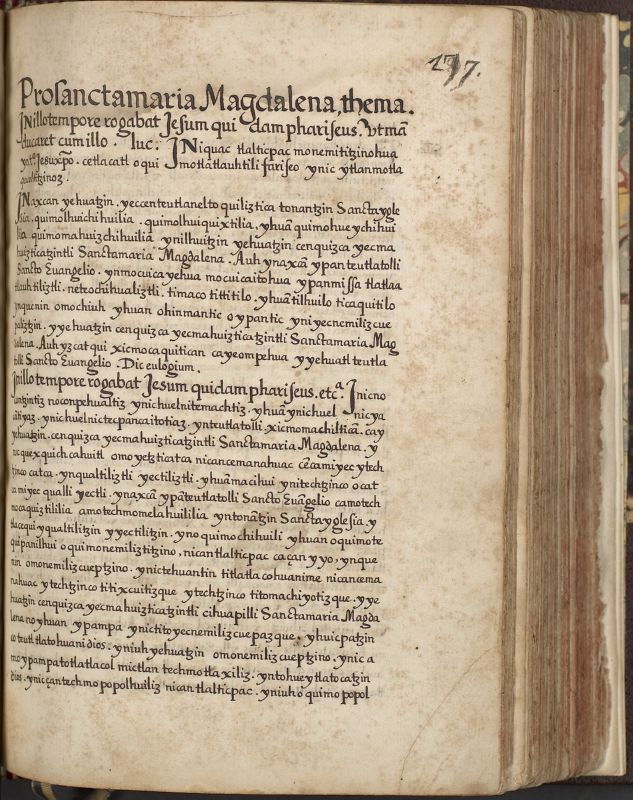 177.
Prosanctamaria Magdalena, thema.
JNillotempore rogabat Jesum qui dam phariseus. Vt mã
ducaret cum illo. luc. JN iquac tlalticpac monemititzinohua
Jesuxpo. cetlacatl o qui motlatlauhtili fariseo ynic ytlanmotla
qualtitzinoz.
JNaxcan yehuatzin. yeccenteutlanelto quiliztica tonantzin Sanctaygle
sia. quimolhuichihuilia. quimolhuiquixtilia, yhuã quimohueychihui
lia. quimomahuizchihuilia ynilhuitzin yehuatzin cenquizca yecma
huizticatzintli Sanctamaria Magdalena. Auh ynaxcã ypan teutlatolli
Sancto Euangelio. ynmocuica yehua mocuicaitohua ypanmissa tlatlaa
tlauhtiliztli. neteochihualiztli. timaco tititilo. yhuã tilhuilo ticaquitilo
ynquenin omochiuh yhuan ohinmantic oypantic yniyecnemilizcue
paliztzin. yyehuatzin cenquizca yecmahuizticatzintli Sanctamaria Mag
dalena. Auh yzcatqui xicmocaquitican cayeompehua yyehuatl teutla
tolli Sancto Euangelio. Dic eulogium.
Jnillo tempore rogabat Jesum quidam phariseus. etcª. Jnicno
noconpehualtiz ynichuelnitemachtiz. yhuã ynichuel nicya
ynichuelnictecpancaitotiaz. ynteutlatolli. xicmomachiltican. cay
yehuatzin. cenquizca yecmahuizticatzintli Sanctamaria Magdalena. y
nicquexquich cahuitl omoyetzticatca nicancemanahuac cẽcamiyec ytech
tzinco catca. ynqualtiliztli yectiliztli. yhuãmacihui ynitechtzinco ocat
ca miyec qualli yectli. ynaxcã ypãteutlatolli Sancto Euãgelio camotech
mocaquiztililia amotechmomelahuililia yntonãtzin Sanctayglesia. y
tlacequi yqualtilitzin yyectilitzin. yno quimochihuili yhuan oquimote
quipanilhui oquimonemiliztitzino, nican tlalticpac caçan yyo, ynque
nin omonemilizcueptzino. ynictehuantin titlatlacohuanime nicancema
nahuac ytechtzinco titixcuitizque ytechtzinco titomachiyotizque. yye
huatzin cenquizca yecmahuizticatzintli cihuapilli Sanctamaria Magda
lena noyhuan ypampa ynictitoyecnemilizcuepazque. yhuicpatzin
co teutl tlatohuani dios. yniuh yehuatzin omonemilizcueptzino. ynic a
mo ypampa totlatlacol mictlan techmotlaxiliz. yntohueytlatocatzin
dios. yniccantechmopopolhuiliz nican tlalticpac. yniuh oquimopopol